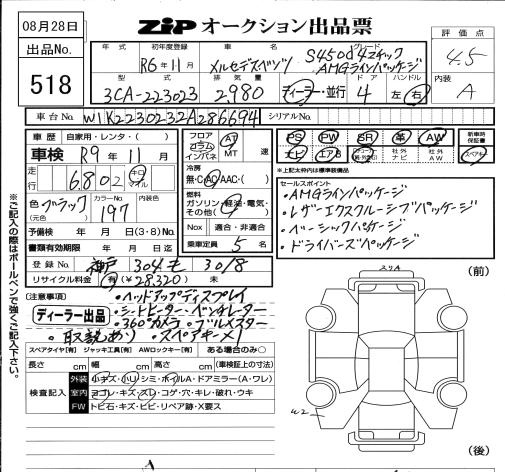 08月28日
ZIP オークション出品票
出品No.
518
評価点
4.5
内装
A
年式 初年度登録 車名 グレード
R6年11月 メルセデスベンツ S450d4マチック AMGラインパッケージ
型式 排気量 ドア ハンドル
3CA-223023 2,980 ディーラー・並行 4 左・右
車台No. W1K2230232A286694 シリアルNo.
車歴 自家用・レンタ・( )
車検 R9年11月
走行 6,802 キロ マイル
色 ブラック (元色) カラーNo. 197 内装色
予備検 年 月 日(3・8)No.
書類有効期限 年 月 日迄
登録No. 神戸 304 も 3018
リサイクル料金 有(¥28,320) 未
フロア コラム インパネ AT MT 速
冷房 無・C・AC・AAC・( )
燃料 ガソリン・軽油・電気・その他( )
Nox 適合・非適合
乗車定員 5 名
PS PW SR 革 AW
ナビ エアB 社外ナビ 社外AW
新車時保証書
スペアキー
*上記太枠内は標準装備品
セールスポイント
・AMGラインパッケージ
・レザーエクスクルーシブパッケージ
・ベーシックパッケージ
・ドライバーズパッケージ
(注意事項)
・ヘッドアップディスプレイ
ディーラー出品
・シートヒーター・ベンチレーター
・360°カメラ・ブルメスター
・取説あり・スペアキー×1
スペアタイヤ[有] ジャッキ工具[有] AWロックキー[有] ある場合のみ○
長さ cm 幅 cm 高さ cm (車検証上の寸法)
検査記入
外装 小キズ・ハリ・シミ・ホイルA・ドアミラー(A・ワレ)
室内 ヨゴレ・キズ・スレ・コゲ・穴・キレ・破れ・ウキ
FW トビ石・キズ・ヒビ・リペア跡・X要ス
※ご記入の際はボールペンで強くご記入下さい。
(前)
W2
(後)
A